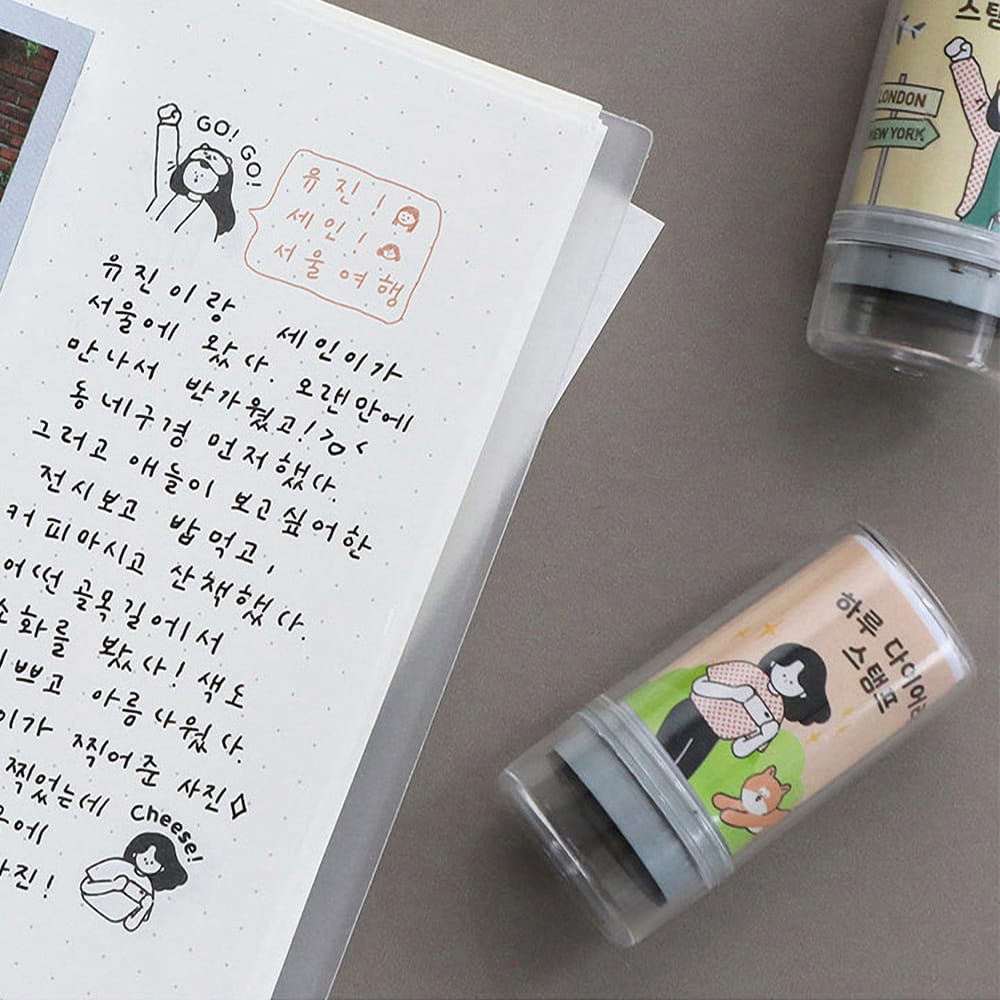 GO! GO!
유진!
세인!
서울여행
유진이랑 세인이가
서울에 왔다. 오랜만에
만나서 반가웠고!
동네구경 먼저했다.
그러고 애들이 보고싶어한
전시보고 밥먹고,
커피마시고 산책했다.
어떤 골목길에서
소화를 봤다! 색도
쁘고 아름다웠다.
이가 찍어준 사진
찍었는데
에
사진!
cheese!
LONDON
NEW YORK
스탬
하루 다이어
스탬프